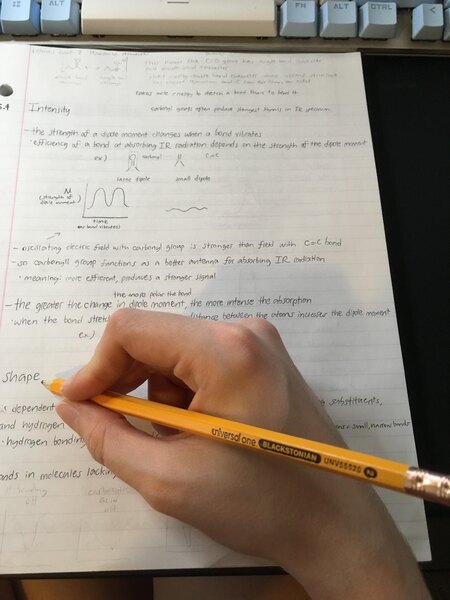 ALT
BACKSPACE
FN
ALT
CTRL
takes more energy to stretch a bond than to bend it
5.4
Intensity
carbonyl groups often produce strongest signals in IR spectrum
- the strength of a dipole moment changes when a bond vibrates
· efficiency of a bond at absorbing IR radiation depends on the strength of the dipole moment
ex) carbonyl C=C
large dipole small dipole
(strength of dipole moment)
time
(as bond vibrates)
- oscillating electric field with carbonyl group is stronger than field with C=C bond
- so carbonyl group functions as a better antenna for absorbing IR radiation
· meaning: more efficient, produces a stronger signal
the more polar the bond
- the greater the change in dipole moment, the more intense the absorption
· when the bond distance between the atoms increases the dipole moment
ex)
shape
is dependent substituents,
and hydrogen = small, narrow bands
· hydrogen bonding
bonds in molecules lacking
universal one BLACKSTONIAN UNV55520